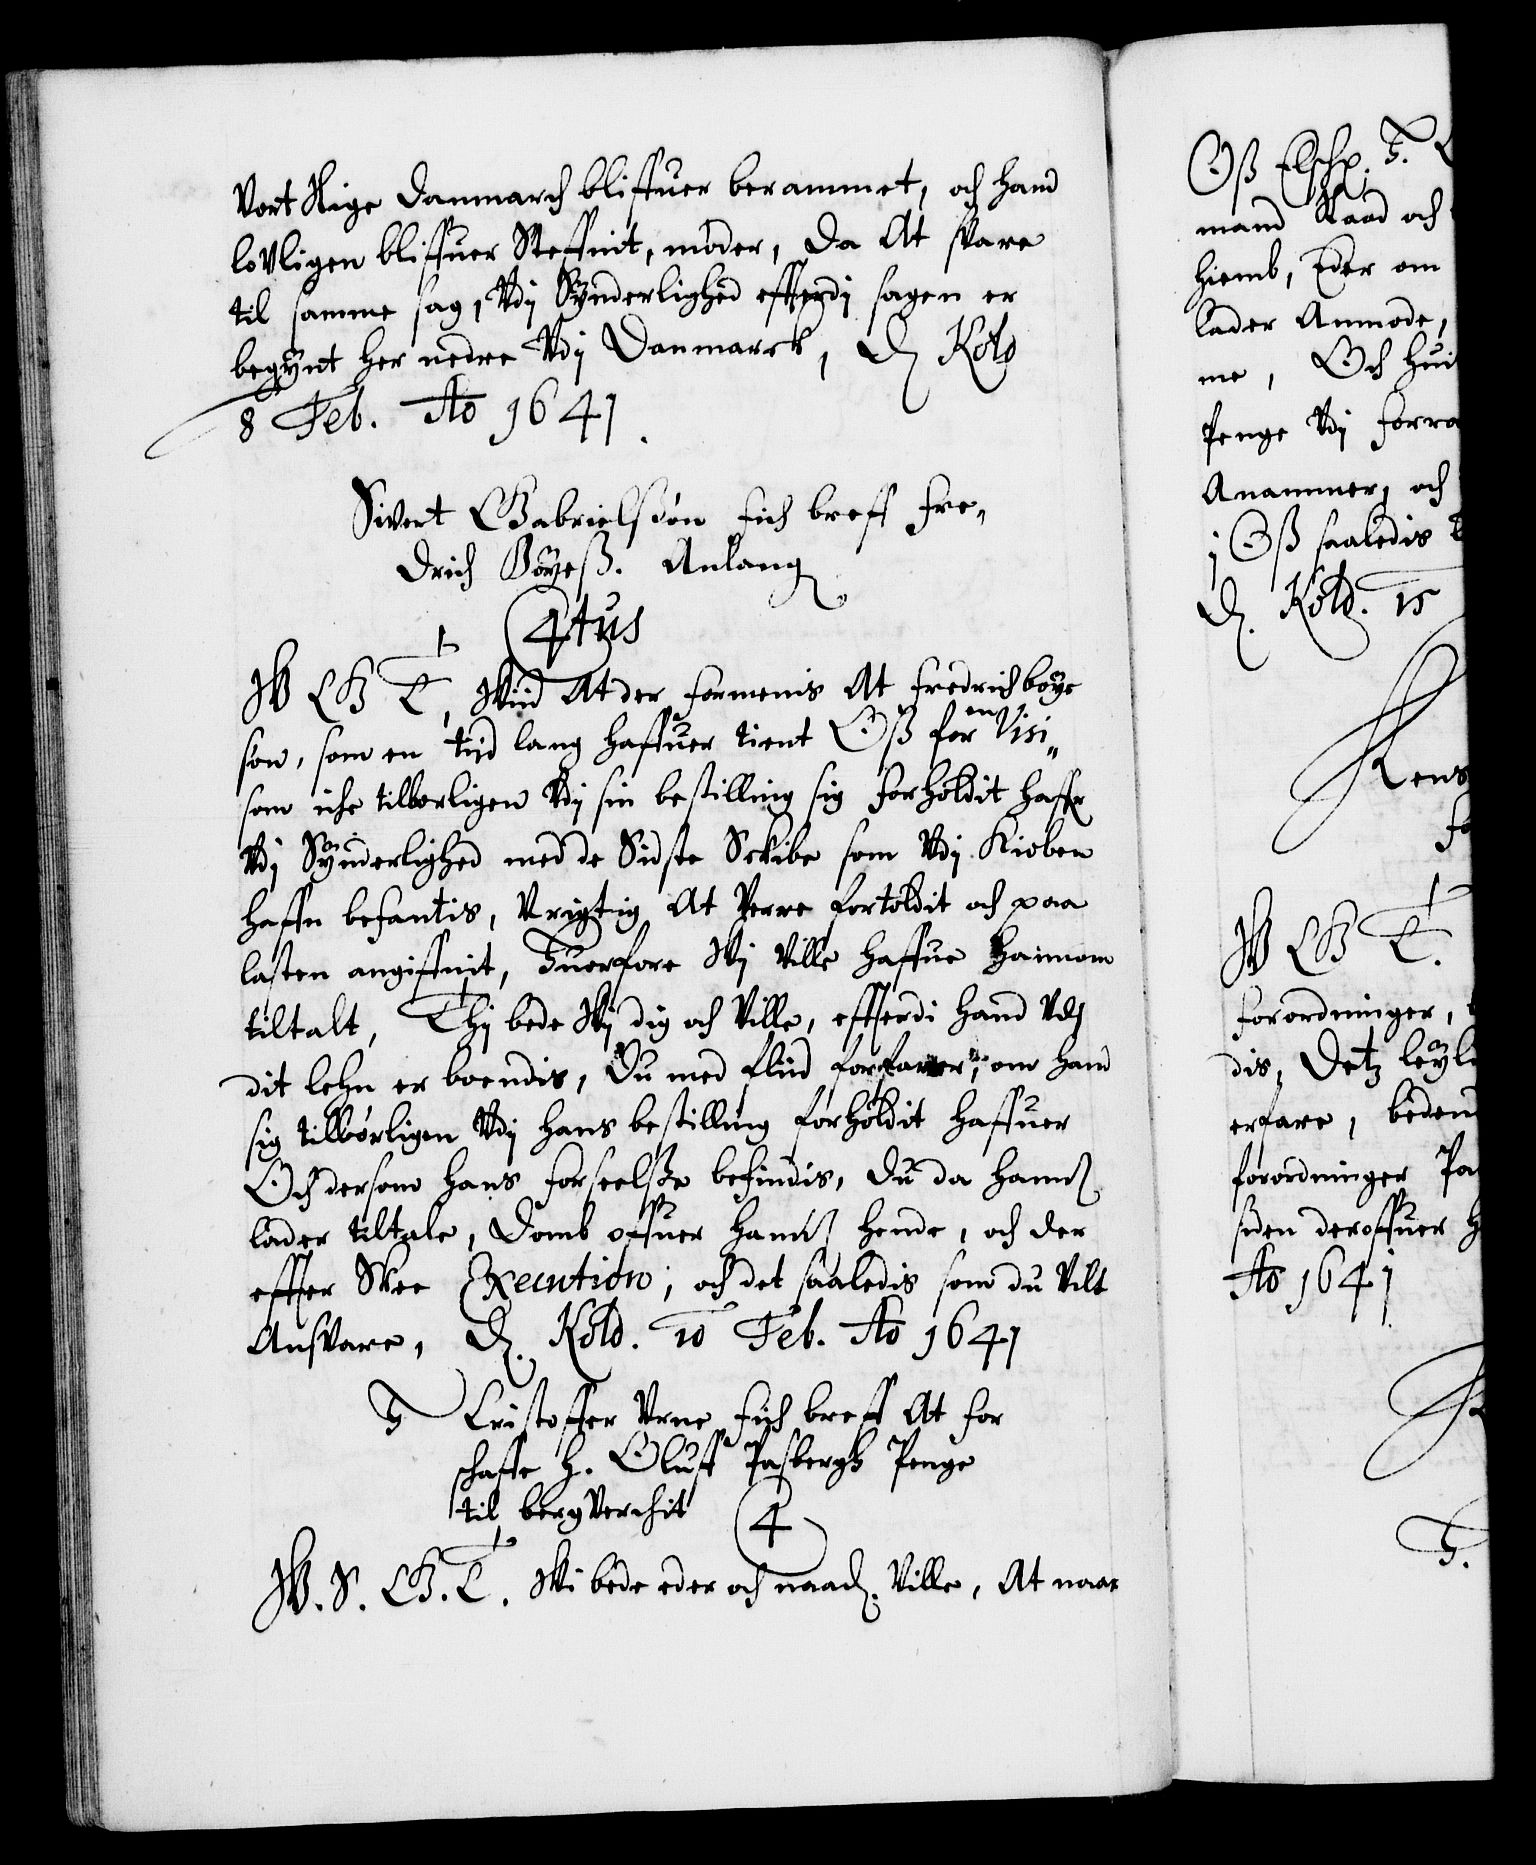 Vort Rige Danmarch bliffuer berammet, och hand
lovligen bliffuer Steffnit, møder, Da At svare
til samme sag, Vdj Synderlighed efterdj sagen er
begynt her nedre Vdj Danmarck, D Kold
8 Feb. Ao 1641.
Sivert Gabrielssøn fich breff Fre„
drich Bøyeß. Anlang
4tus
W G T, Wiid At der formenis At Fredrich bøye
søn, som en tijd lang haffuer tient Oß for en Visi„
som iche tilborligen Vdj sin bestilling sig forholdit haffr
Vdj Synderlighed med de Sidste Sckibe som Vdj Kiøben
haffn befantis, Vrigtig At Verre fortoldit och paa
lasten angiffuit, Huorfore Wj Ville haffue hannom
tiltalt, Thj bede Wj dig och Ville, effterdi hand Vdj
dit lehn er boendis, Du med fliid forfarer, om hand
sig tilbørligen Vdj hans bestilling forholdit haffuer
Och dersom hans forseelße befindis, Du da hannß
lader tiltale, Domb offuer hannß hende, och der
effter Skee Execution, och det saaledis som du Vilt
Ansvare, D. Kold. 10 Feb. Ao 1641
H Cristoffer Vrne fich breff At for
schaffe H. Oluff Pasbergh Penge
til bergVerchit 4
W. S. G. T. Wi bede eder och naad. Ville, At naar
Oß Elschl. H.
mand Raad och
hiemb, Eder om
lader Anmode,
me, Och hui
Penge Vdj forra
Anammer, och
j Oß saaledis
D. Kold. 15
W G T.
forordninger,
dis, Detz leyl
erfare, beden
forordninger Pa
siden deroffuer H
Ao 1641
H.